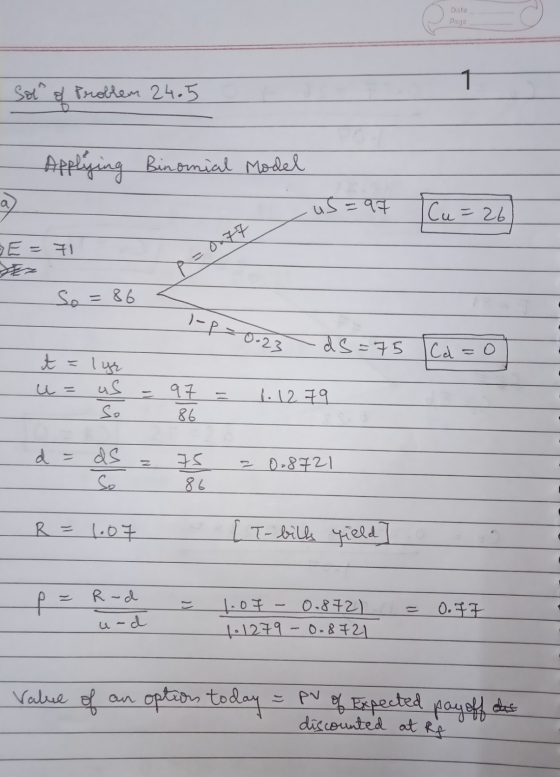 Date
Page
1
Solⁿ of Problem 24.5
Applying Binomial Model
a)
E = 71
uS = 97 Cu = 26
p = 0.77
S₀ = 86
1-p = 0.23
dS = 75 Cd = 0
t = 1 yr
u = uS/S₀ = 97/86 = 1.1279
d = dS/S₀ = 75/86 = 0.8721
R = 1.07 [T-bills yield]
p = R-d/u-d = 1.07 - 0.8721/1.1279 - 0.8721 = 0.77
Value of an option today = PV of Expected payoff
discounted at Rf